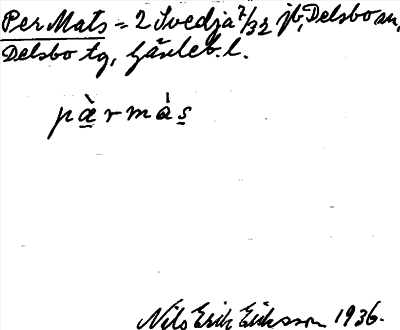 Per Mats = 2 Svedja 7/32 jb, Delsbo sn,
Delsbo tg, Gävleb. l.
pæ̀rmàs
Nils Erik Eriksson 1936.